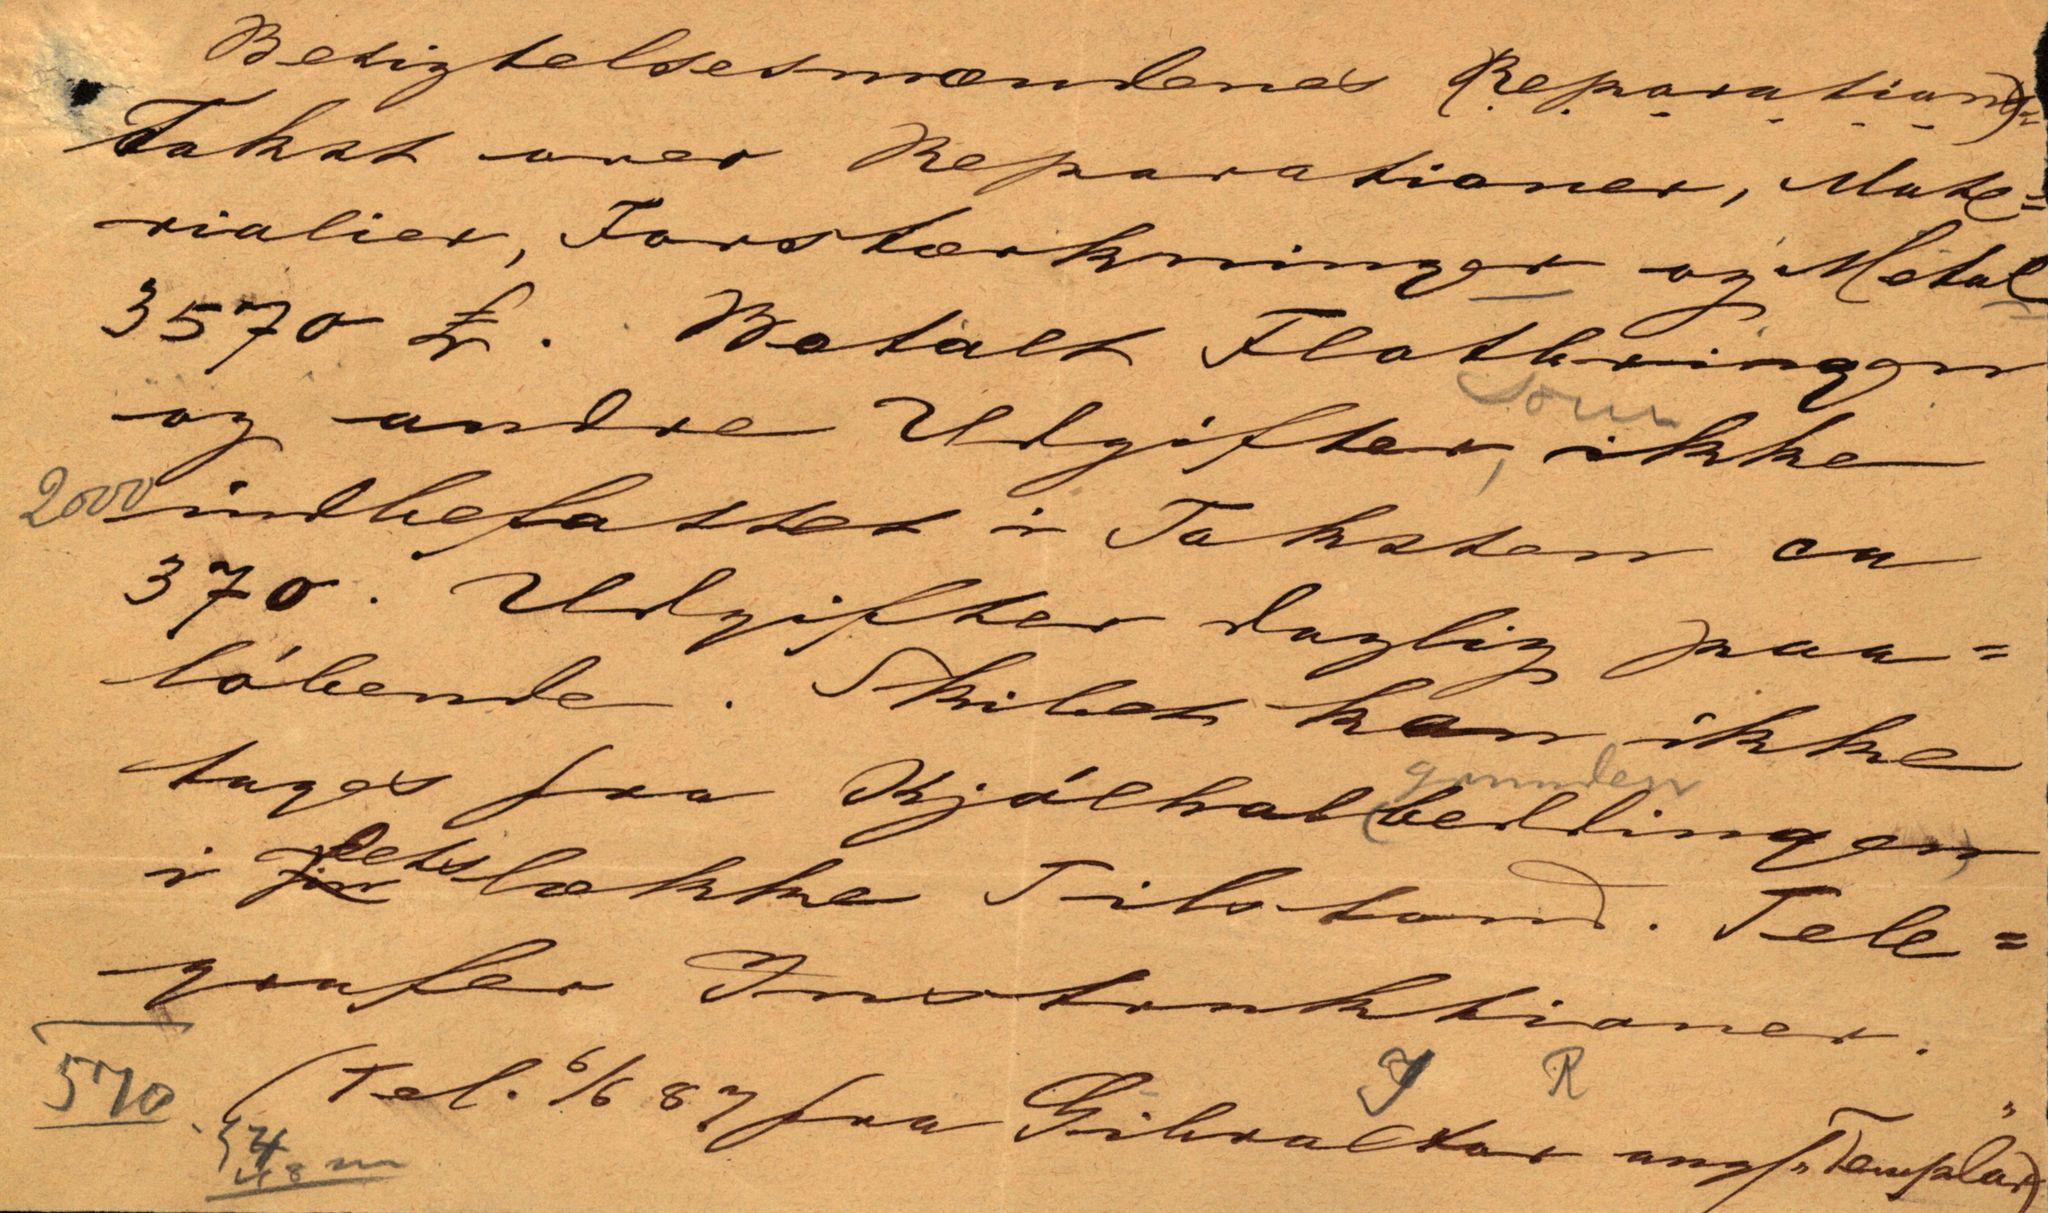 Besigtelsesmændenes (Reparations)=
Takst over Reparationer, Mate=
rialier, Forstærkninger og Metal
3570 £. Betalt Flotbringgen
som
og andre Udgifter, ikke
2000 indbefattet i Taksten ca
370. Udgifter daglig paa=
løbende. Skibet kan ikke
grunden
tages fra Kjølhal(beddingen)
i dets lække Tilstand. Tele=
grafer Instruktioner.
J R
570 (Tel. 6/6 87 fra Gibraltar ang. "Templar")
48 m